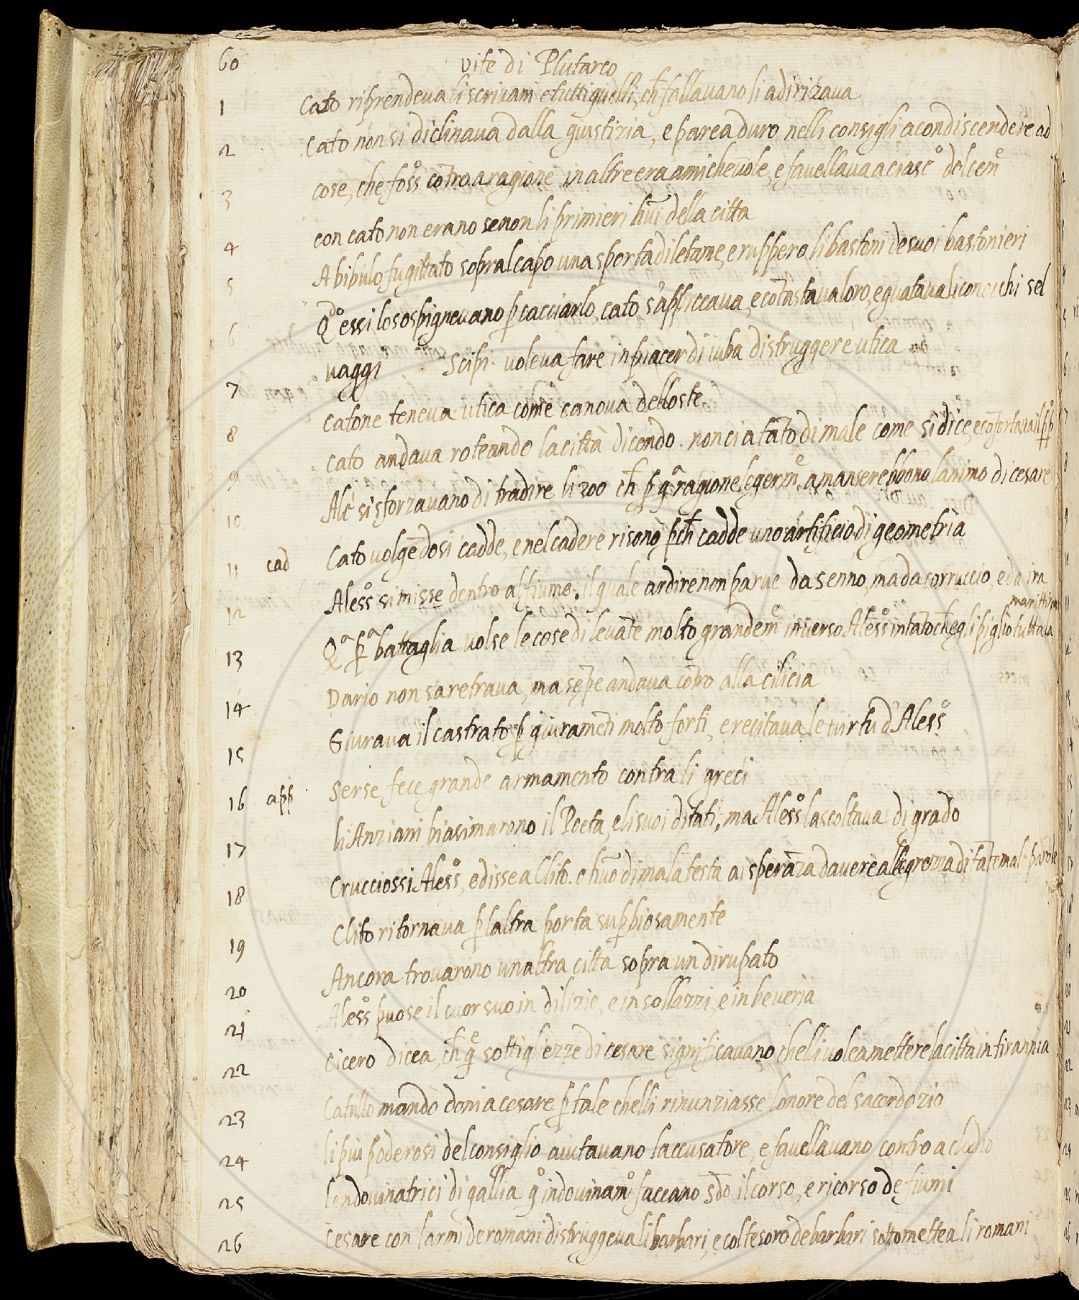 60 vite di Plutarco
1 Cato riprendeva li scrivani e tutti quelli, ch fallavano li adirizava
2 Cato non si diclinava dalla giustizia, e parea duro nelli consigli a condiscendere ad
cose, che foss contra a ragione in altre era amichevole, e favellava a ciasc° dolcem
3 con cato non erano senon li primieri hui della citta
4 A bibulo fu gittato sopra l capo una sporta di letame, e ruppero li bastoni de suoi bastonieri
5 essi lo sospignevano p cacciarlo cato s'appiccava, e cotastava loro, e guatava li con occhi sel
6 vaggi Scipi voleva fare in piacer di iuba distruggere utica
7 Catone teneva utica come canova dell oste
8 Cato andava roteando la città dicendo non ci a fato di male come si dice, e confortava il
9 si sforzavano di tradire li 300 ch p ragione legerm amansere lanimo di cesare
10 Cato volgedosi cadde, e nel cadere risono pch cadde uno artificio di geometria
11 cad Aless° si misse dentro al fiume, il quale ardire non parve da senno, ma da corruccio, e da ira
12 battaglia volse le cose di levate molto grandem inverso Aless° in tato che gli piglio tuttava
13 Dario non s aretrava, ma sepe andava cotro alla cilicia
14 Giurava il castrato p giurameti molto forti, e recitava le virtu d'Aless°
15 Serse fece grande armamento contra li greci
16 app li Anziani biasimarono il Poeta, e li suoi ditati, ma Aless° lascoltava di grado
17 Crucciossi Aless°, e disse a Clito. di mala testa ai speraza d avere allegrezza di
18 Clito ritornava p laltra porta supbiosamente
19 Ancora trovarono unaltra citta sopra un dirupato
20 Aless° puose il cuor suo in dilizie, e in sollazzi, e in beveria
21 Cicero dicea, ch sottigliezze di cesare significavano chelli volea mettere la città in tirannia
22 Catulo mandò doni a cesare p tale chelli rinunziasse lonore del sacerdozio
23 li piu poderosi del consiglio aiutavano laccusatore, e favellavano contro a clodio
24 lendovinatrici di gallia indovinam faceano il corso, e ricorso de fiumi
25 Cesare con larmi de romani distruggeva li barbari, e col tesoro de barbari sottomettea li romani
26